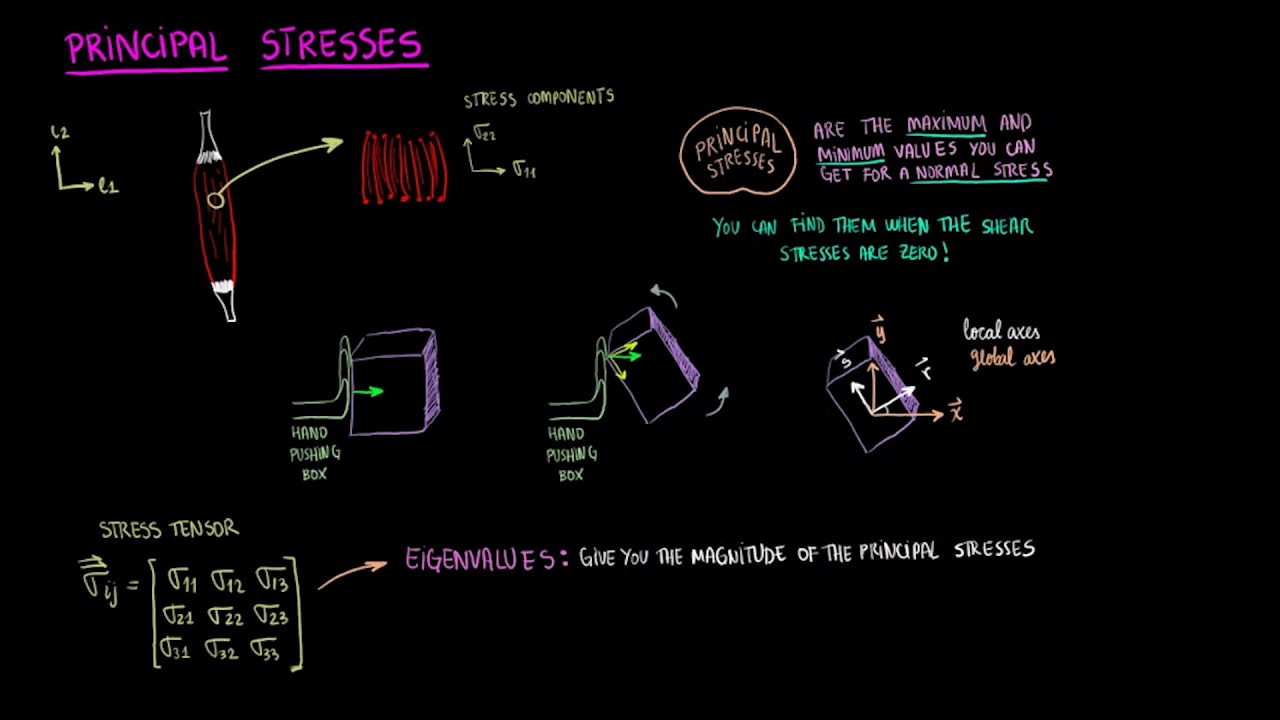 PRINCIPAL STRESSES
e2
e1
STRESS COMPONENTS
σ22
σ11
PRINCIPAL
STRESSES
ARE THE MAXIMUM AND
MINIMUM VALUES YOU CAN
GET FOR A NORMAL STRESS
YOU CAN FIND THEM WHEN THE SHEAR
STRESSES ARE ZERO!
HAND
PUSHING
BOX
HAND
PUSHING
BOX
y
s
r
x
local axes
global axes
STRESS TENSOR
σij =
σ11 σ12 σ13
σ21 σ22 σ23
σ31 σ32 σ33
EIGENVALUES: GIVE YOU THE MAGNITUDE OF THE PRINCIPAL STRESSES